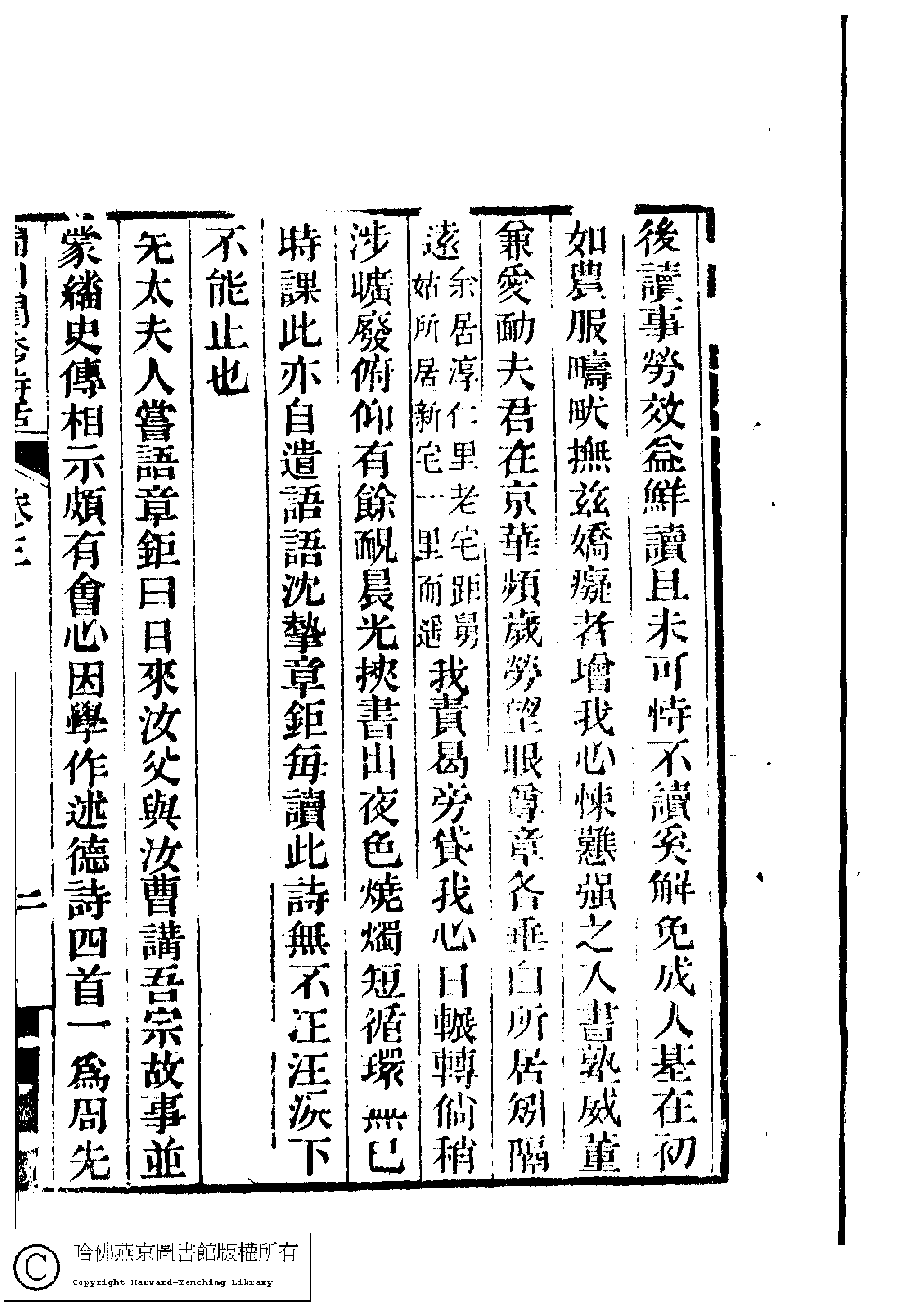 後讀事勞效益鮮讀且未可恃不讀奚解免成人基在初
如農服疇畎撫茲嬌癡者增我心悚難强之入書塾威董
兼愛勔夫君在京華頻歲勞望眼尊章各垂白所居矧隔
遠
余居淳仁里老宅距舅
姑所居新宅一里而遥
我責曷旁貸我心日輾轉倘稍
涉曠廢俯仰有餘覥晨光挾書出夜色燒燭短循環無已
時課此亦自遣語語沈摯章鉅每讀此詩無不汪汪淚下
不能止也
先太夫人嘗語章鉅曰日來汝父與汝曹講吾宗故事並
蒙繙史傳相示頗有會心因學作述德詩四首一爲周先
閩川閨秀詩話
卷三
二
哈佛燕京圖書館版權所有
Copyright Harvard-Yenching Library